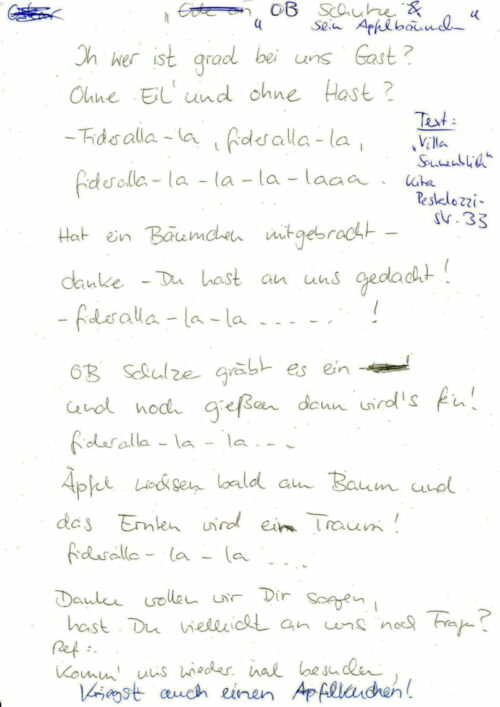 "Ode an" OB Schulze &
" sein Apfelbäumchen "
Ih wer ist grad bei uns Gast?
Ohne Eil' und ohne Hast?
- Fideralla-la, fideralla-la,
fideralla-la-la-la-laaa.
Text:
"Villa
Sonnenblick"
Kita
Pestalozzi-
str. 33
Hat ein Bäumchen mitgebracht -
danke - Du hast an uns gedacht!
- fideralla-la-la ..... !
OB Schulze gräbt es ein
und noch gießen dann wird's fein!
fideralla-la-la...
Äpfel wachsen bald am Baum und
das Ernten wird ein Traum!
fideralla-la-la ....
Danke wollen wir Dir sagen,
hast Du vielleicht an uns noch Fragen?
Ref.:
Komm' uns wieder mal besuchen,
Kriegst auch einen Apfelkuchen!